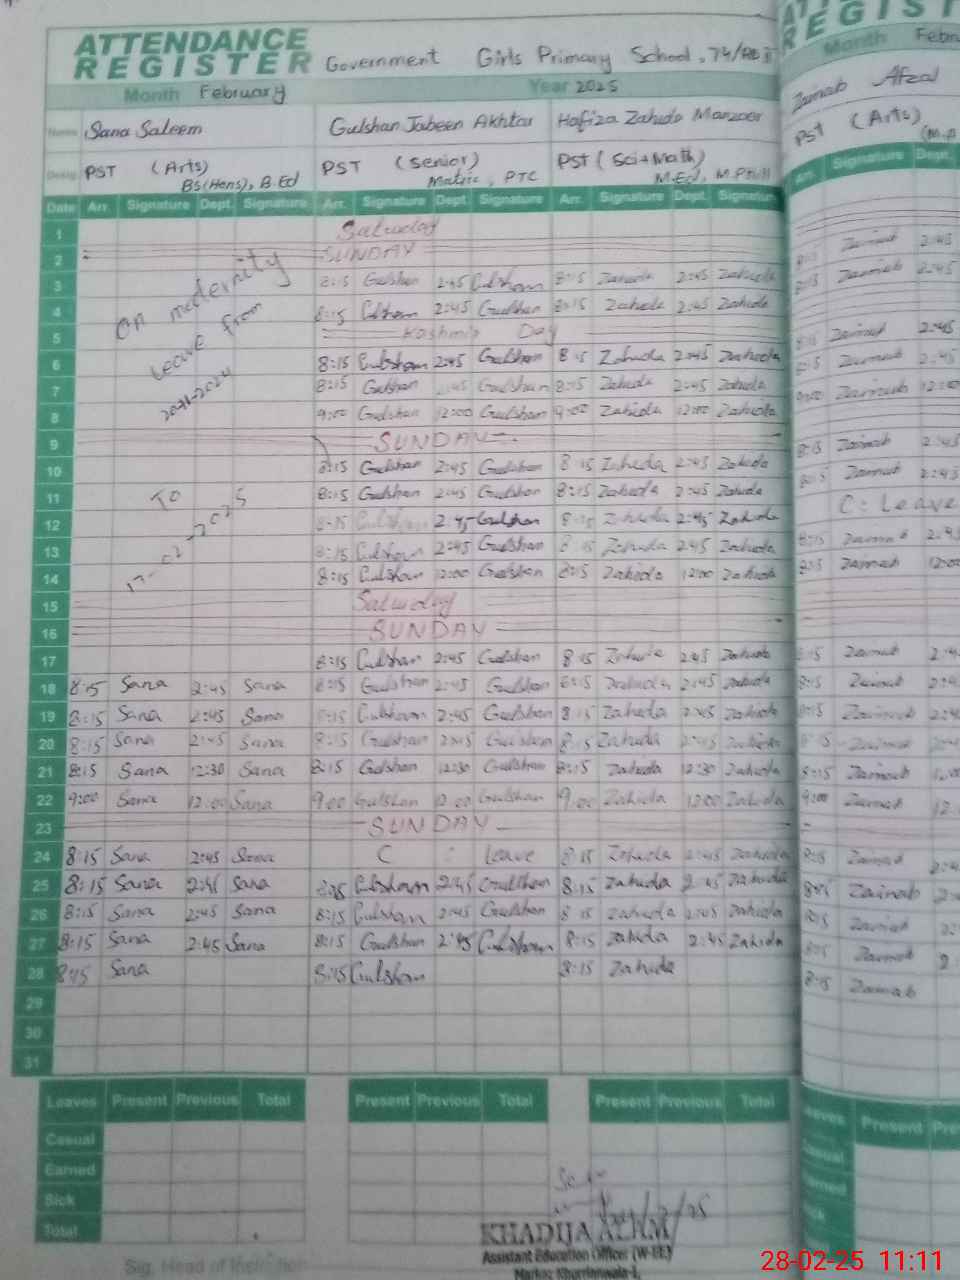 ATTENDANCE
REGISTER Government Girls Primary School, 74/RB II
Month February Year 2025
Name Sana Saleem Gulshan Jabeen Akhtar Hafiza Zahida Manzoor
Desig. PST (Arts) PST (Senior) PST (Sci+Math)
BS(Hons), B.Ed Matric, PTC M.Ed, M.Phill
Date Arr. Signature Dept. Signature Arr. Signature Dept. Signature Arr. Signature Dept. Signature
1 Saturday
2 SUNDAY
On maternity
Leave from
To
17-02-2025
3 8:15 Gulshan 2:45 Gulshan 8:15 Zahida 2:45 Zahida
4 8:15 Gulshan 2:45 Gulshan 8:15 Zahida 2:45 Zahida
5 Kashmir Day
6 8:15 Gulshan 2:45 Gulshan 8:15 Zahida 2:45 Zahida
7 8:15 Gulshan 2:45 Gulshan 8:15 Zahida 2:45 Zahida
8 9:00 Gulshan 12:00 Gulshan 9:00 Zahida 12:00 Zahida
9 SUNDAY
10 8:15 Gulshan 2:45 Gulshan 8:15 Zahida 2:45 Zahida
11 8:15 Gulshan 2:45 Gulshan 8:15 Zahida 2:45 Zahida
12 8:15 Gulshan 2:45 Gulshan 8:15 Zahida 2:45 Zahida
13 8:15 Gulshan 2:45 Gulshan 8:15 Zahida 2:45 Zahida
14 8:15 Gulshan 12:00 Gulshan 8:15 Zahida 12:00 Zahida
15 Saturday
16 SUNDAY
17 8:15 Gulshan 2:45 Gulshan 8:15 Zahida 2:45 Zahida
18 8:15 Sana 2:45 Sana 8:15 Gulshan 2:45 Gulshan 8:15 Zahida 2:45 Zahida
19 8:15 Sana 2:45 Sana 8:15 Gulshan 2:45 Gulshan 8:15 Zahida 2:45 Zahida
20 8:15 Sana 2:45 Sana 8:15 Gulshan 2:45 Gulshan 8:15 Zahida 2:45 Zahida
21 8:15 Sana 12:30 Sana 8:15 Gulshan 12:30 Gulshan 8:15 Zahida 12:30 Zahida
22 9:00 Sana 12:00 Sana 9:00 Gulshan 12:00 Gulshan 9:00 Zahida 12:00 Zahida
23 SUNDAY
24 8:15 Sana 2:45 Sana C : Leave 8:15 Zahida 2:45 Zahida
25 8:15 Sana 2:45 Sana 8:15 Gulshan 2:45 Gulshan 8:15 Zahida 2:45 Zahida
26 8:15 Sana 2:45 Sana 8:15 Gulshan 2:45 Gulshan 8:15 Zahida 2:45 Zahida
27 8:15 Sana 2:45 Sana 8:15 Gulshan 2:45 Gulshan 8:15 Zahida 2:45 Zahida
28 8:15 Sana 8:15 Gulshan 8:15 Zahida
29
30
31
Leaves Present Previous Total Present Previous Total Present Previous Total
Casual
Earned
Sick
Total
KHADIJA
Assistant Education Officer (W-EE)
Markaz Khurrianwala-I,
Sig. Head of Institution
REGIST
Month Febru
Zainab Afzal
PST (Arts)
Arr. Signature Dept.
8:15 Zainab 2:45
8:15 Zainab 2:45
8:15 Zainab 2:45
8:15 Zainab 2:45
9:00 Zainab 12:00
8:15 Zainab 2:45
8:15 Zainab 2:45
C: Leave
8:15 Zainab 2:45
8:15 Zainab 12:00
8:15 Zainab 2:4
8:15 Zainab 2:4
8:15 Zainab 2:4
8:15 Zainab
8:15 Zainab
9:00 Zainab 12:
8:15 Zainab 2:4
8:15 Zainab 2:
8:15 Zainab 2:
8:15 Zainab 2:
8:15 Zainab
Leaves Present Pre
Casual
Earned
Sick
Total
28-02-25 11:11